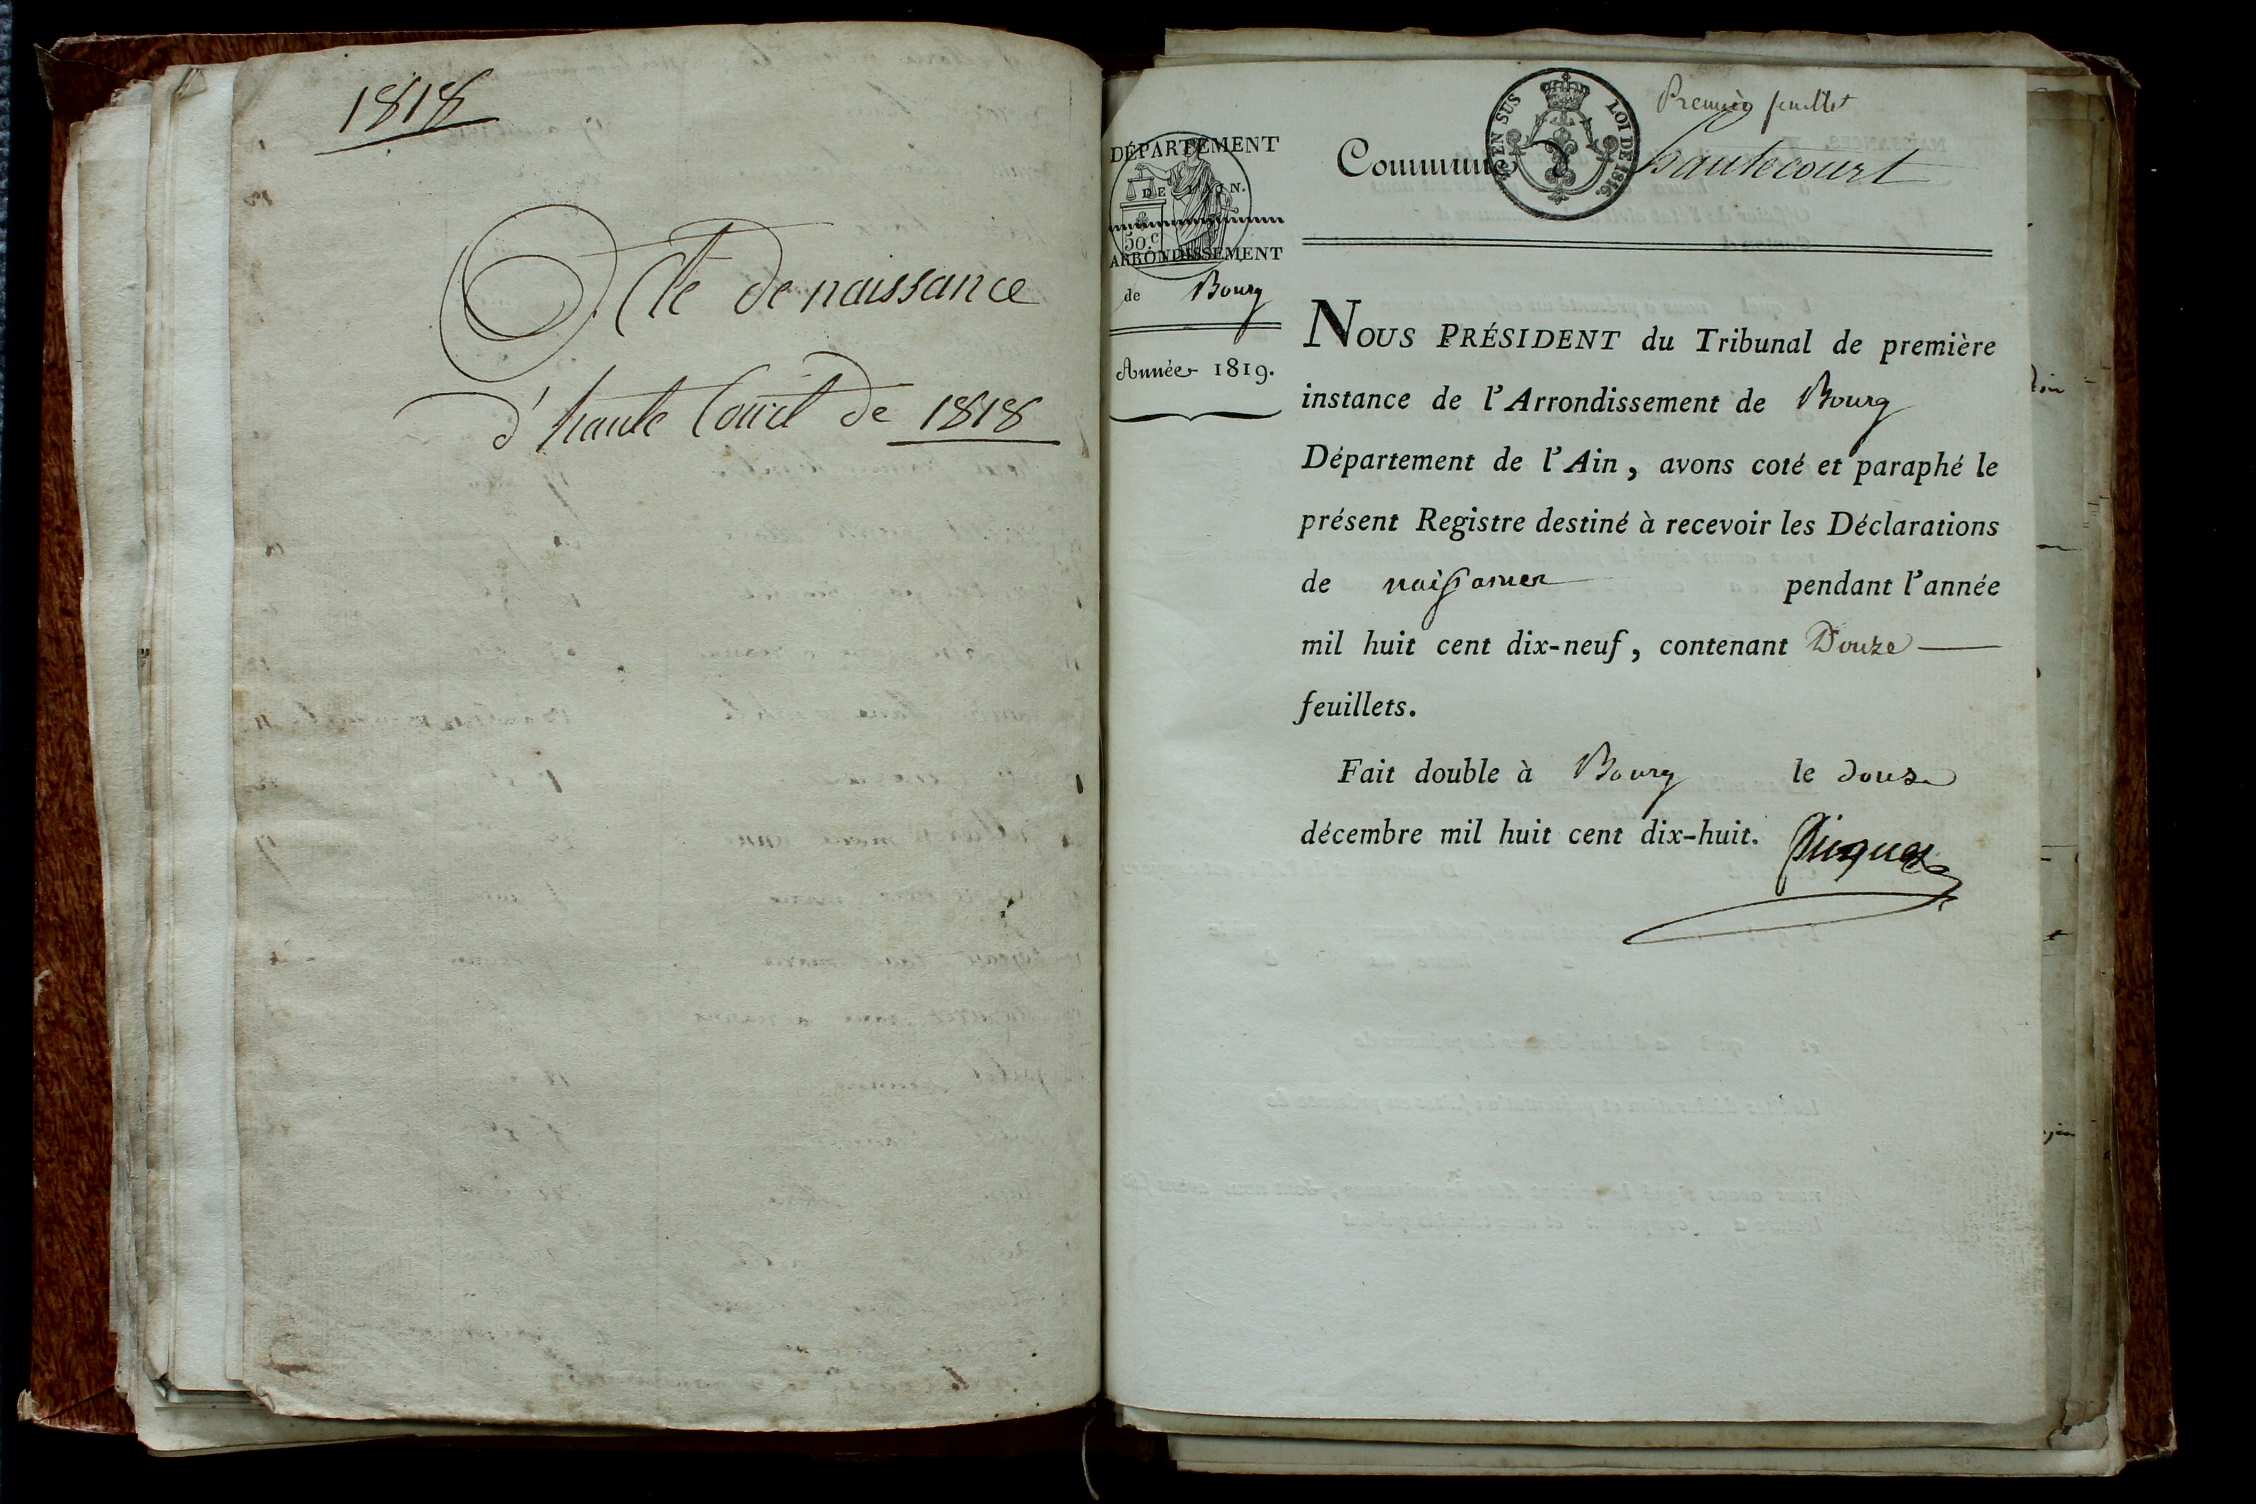 1818
Acte de naissance
d'haute Court de 1818
Premier feuillet
EN SUS LOI DE 1816.
DÉPARTEMENT
DE L'AIN.
50 c
ARRONDISSEMENT
de Bourg
Année 1819.
Commune d hautecourt
NOUS PRÉSIDENT du Tribunal de première
instance de l'Arrondissement de Bourg
Département de l'Ain, avons coté et paraphé le
présent Registre destiné à recevoir les Déclarations
de naissances pendant l'année
mil huit cent dix-neuf, contenant Douze
feuillets.
Fait double à Bourg le douze
décembre mil huit cent dix-huit.